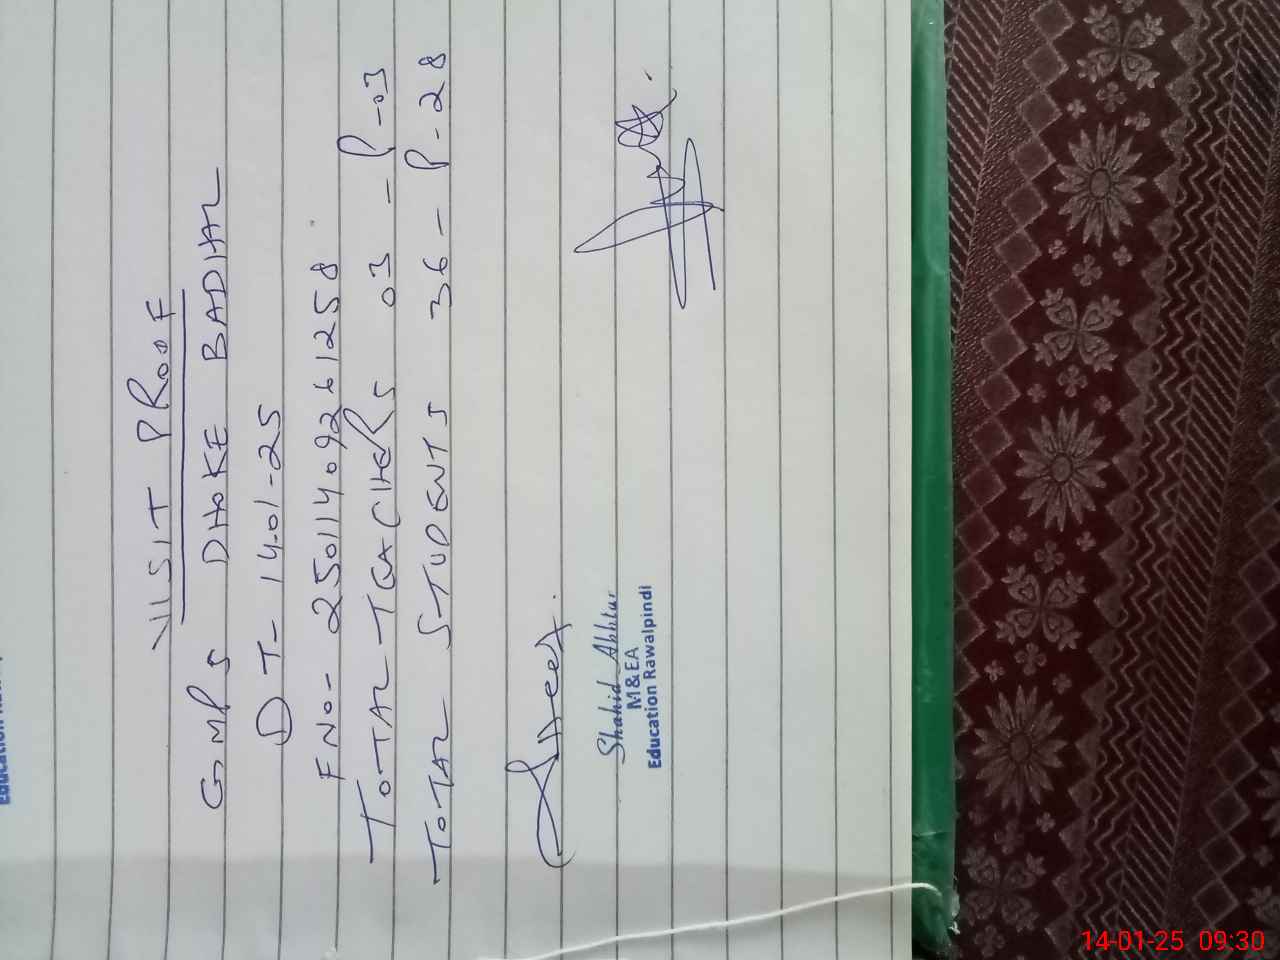 VISIT PROOF
GMPS DHOKE BADHAL
DT- 14-01-25
FNO- 25011409261258
TOTAL TEACHERS 03 - P-03
TOTAL STUDENTS 36 - P-28
Shahid Akhtar
M&EA
Education Rawalpindi
14-01-25 09:30